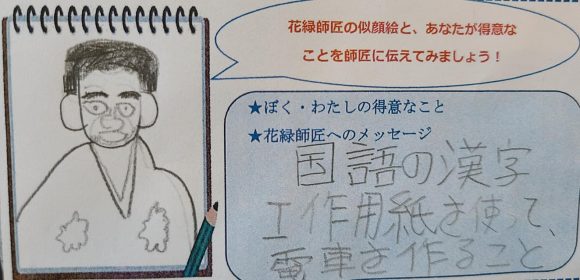 花緑師匠の似顔絵と、あなたが得意な
ことを師匠に伝えてみましょう！
★ぼく・わたしの得意なこと
★花緑師匠へのメッセージ
国語の漢字
工作用紙を使って、
電車を作ること